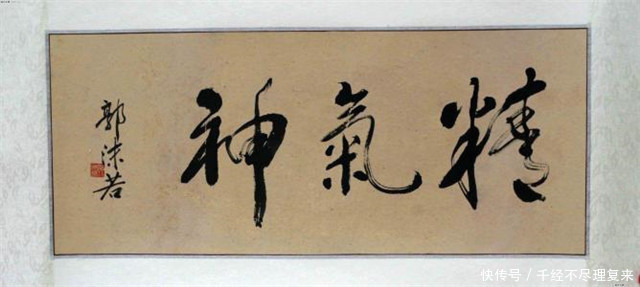 精氣神
郭沫若
快传号／千经不尽理复来